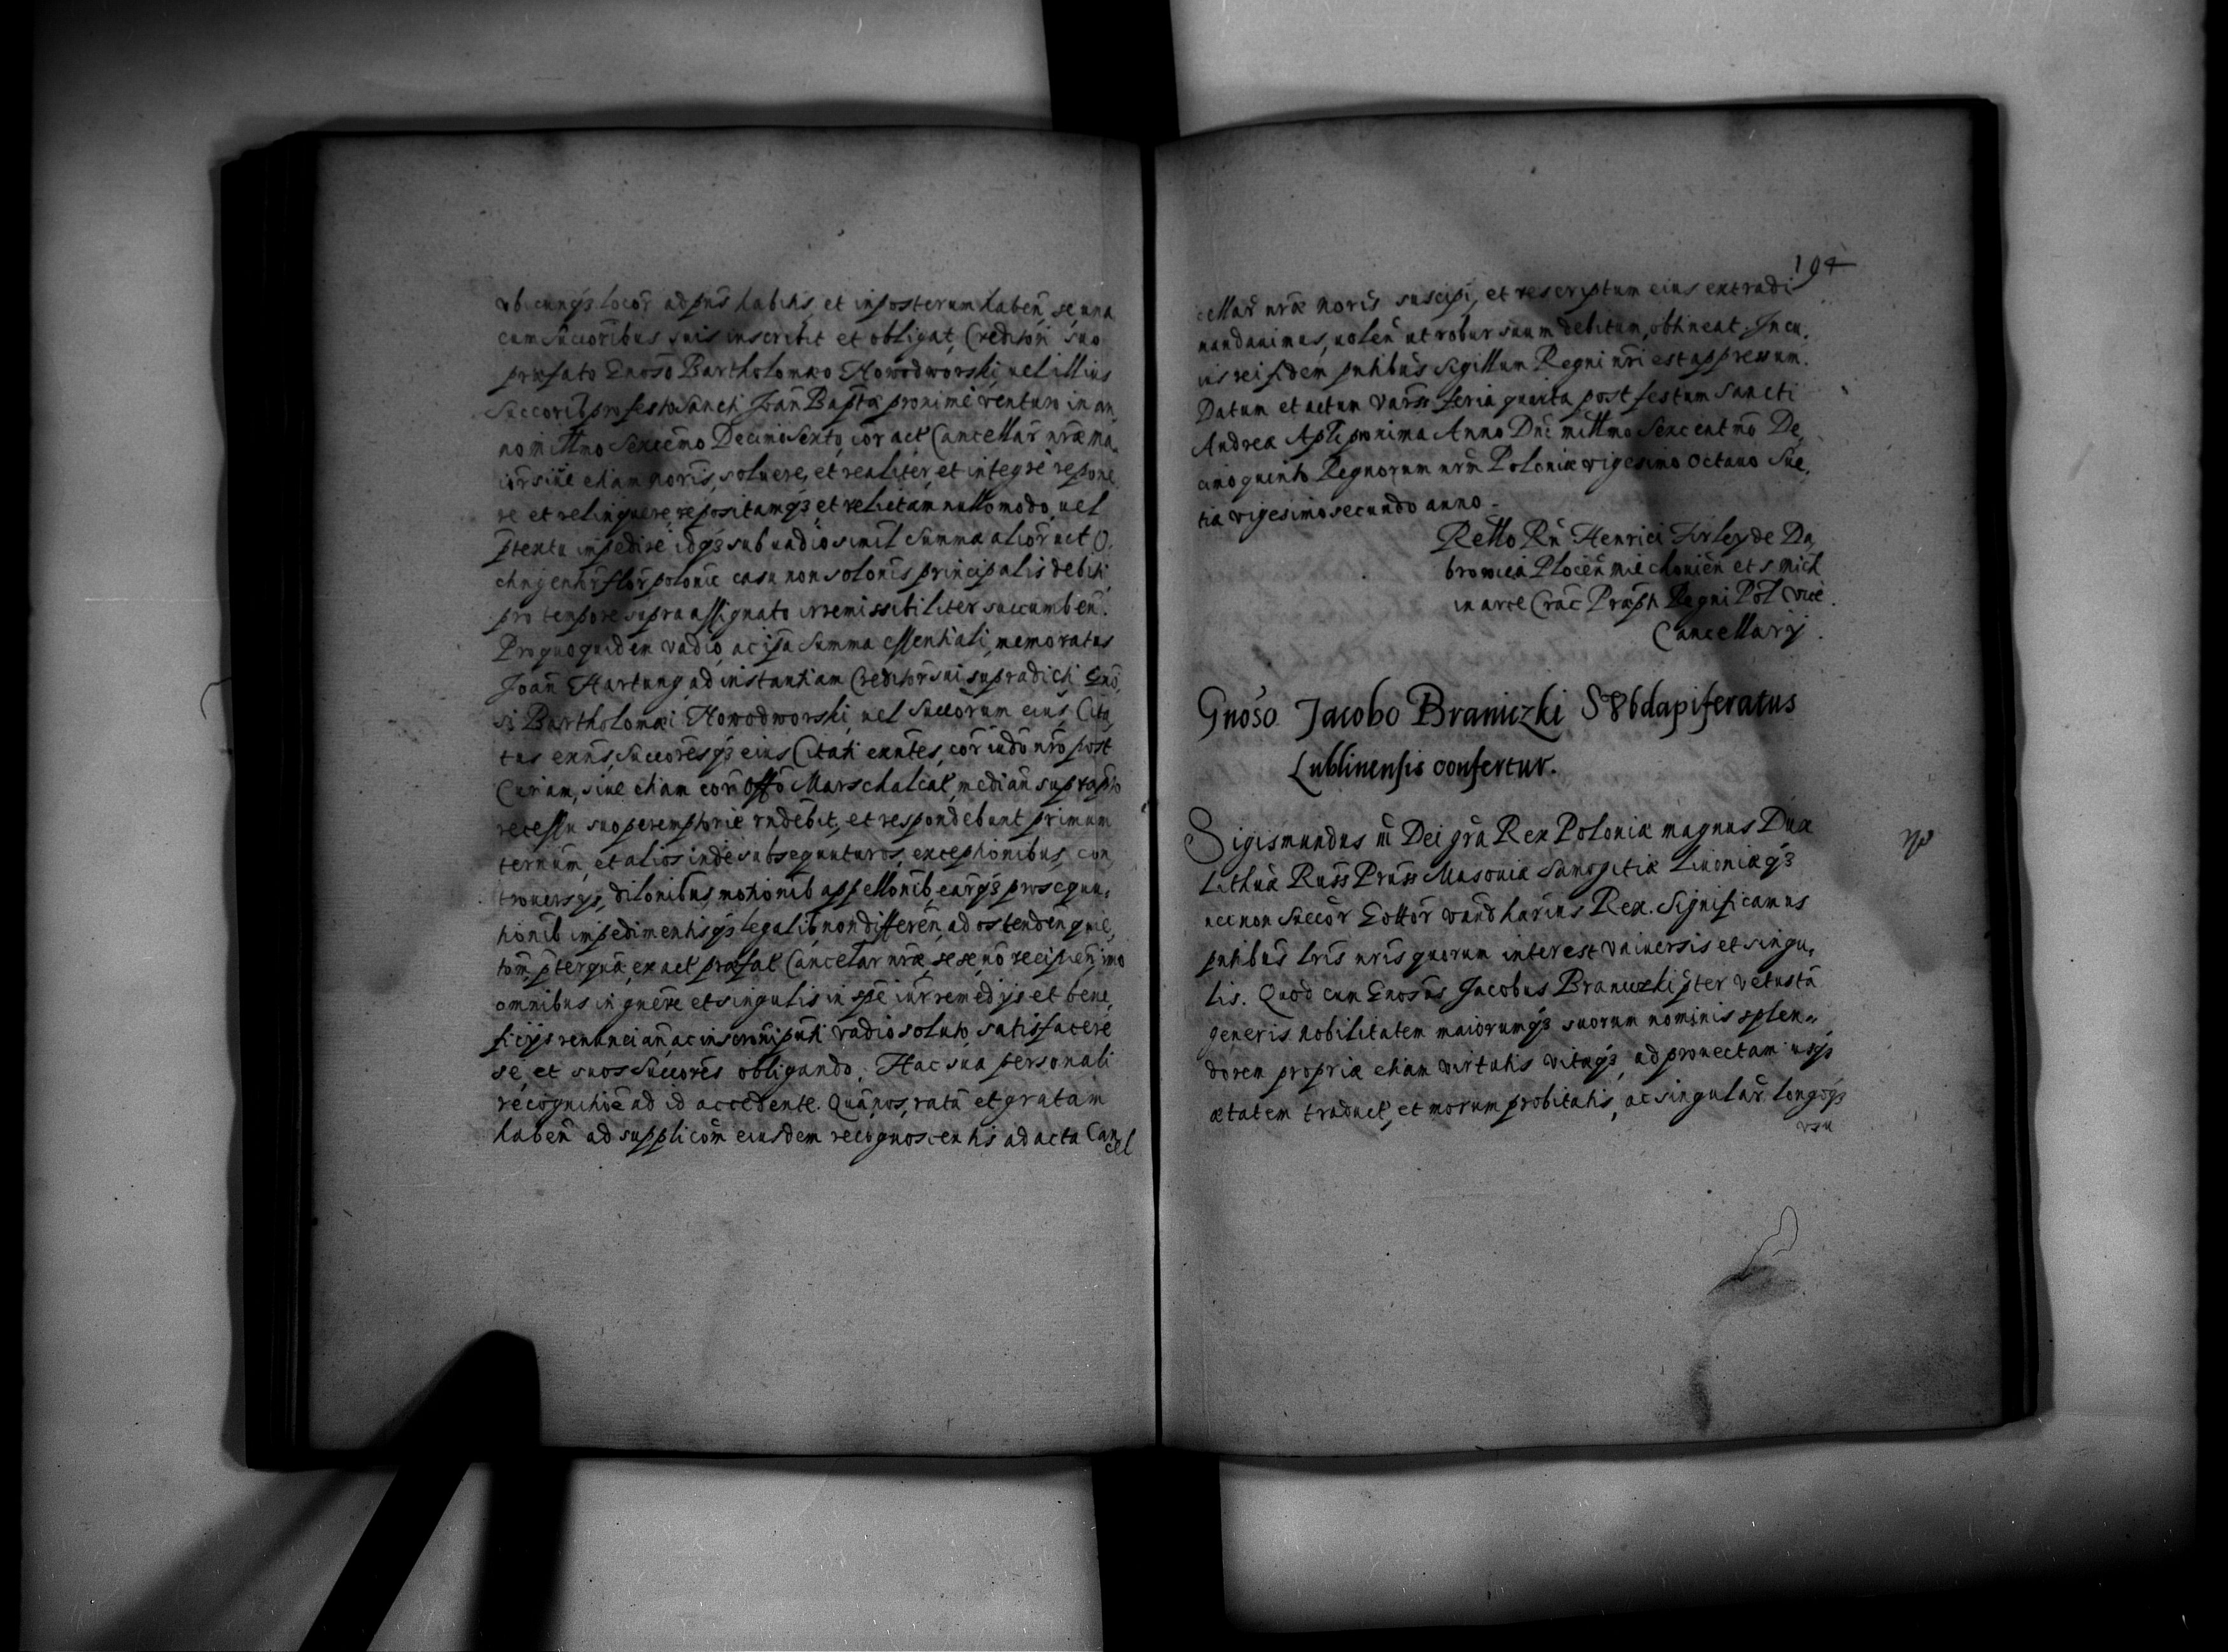 vbicunqз locor̃ adpñs habitis, et inposterum haben̄, se, una
cum Succoribus suis inscribit et obligat, Creditori suo
præfato Gnoso Bartholomæo Nowodworski, uel illius
Succorib pro festo Sancti Joan̄ Bapta proximè venturo in an,
no millmo Sexcēmo Decimo Sexto, cor act Cancellar̄ nr̄æ ma,
ior siue etiam noris, soluere, et realiter, et integrè repone
re et relinquere, repositamqз, et relictam nullo modo, uel
ptextu impedire, idqз sub uadio simil Summa
pro tempore supra assignato irremissibiliter succumben̄.
Pro quo quidem vadio, ac ipsa Summa essentiali, memoratus
Joan̄ Hartung ad instantiam Creditor̄ sui supradicti Gno,
si Bartholomæi Nowodworski, uel Succorum eius Cita
tus exn̄s, Succoresqз eius Citati exn̄tes, cor iudō nr̄o post
Curiam, siue etiam cor Offō Marschalcal, median̄ suprapto
recessu suo peremptoriè rn̄debit, et respondebunt primum
ternum, et alios inde subsequuturos, exceptionibus, con,
trouersijs, dilōnibus, motionib appellōnib, earqз prosequu,
tionib impedimentisqз legalib, non differen̄, ad ostenden̄ quie,
tom̄ pterqua, ex act præfat Cancellar nr̄æ, sese, nō recipien̄, imo
omnibus in gn̄ere et singulis in spē iur̄ remedijs et bene,
ficijs renuncian̄, ac inscrōni pn̄ti vadio soluto, satisfacere
se, et suos Succores obligando. Hac sua personali
recognitiōe ad id accedente. Quā nos, ratā et gratam
haben̄ ad supplicōm eiusdem recognoscentis ad acta Can
cel
194
cellar̄ nr̄æ noris suscipi, et rescriptum eius extradi
mandauimus, uolen̄ ut robur suum debitum, obtineat. In cu,
ius rei fidem pn̄tibus Sigillum Regni nr̄i est appressum.
Datum et actum Varss feria quarta post festum Sancti
Andreæ Apli proxima Anno Dn̄i millmo Sexcentmō De,
cimo quinto Regnorum nr̄m Poloniæ vigesimo octauo Sue,
tiæ vigesimo secundo anno.
Rellō Rn̄ Henrici Firley de Da,
browica Plocēn miechouiēn et S. Mich
in arce Crac Præpti Regni Pol Vice.
Cancellarij.
Gnoso Jacobo Braniczki Subdapiferatus
Lublinensis confertur.
Sigismundus III Dei grā Rex Poloniæ magnus Dux
Lithuæ Russ Pruss Masouiæ Samogitiæ Liuoniæqз
necnon Succor Gottor Vand harius Rex. Significamus
pn̄tibus lr̄is nr̄is quorum interest vniuersis et singu,
lis. Quod cum Gnosus Jacobus Braniczki pter vetustā
generis nobilitatem maiorumqз suorum nominis splen,,
dorem propriæ etiam virtutis vitæqз, ad prouectam usqз
ætatem traduct, et morum probitatis, ac singular̄ longoqз
vsu